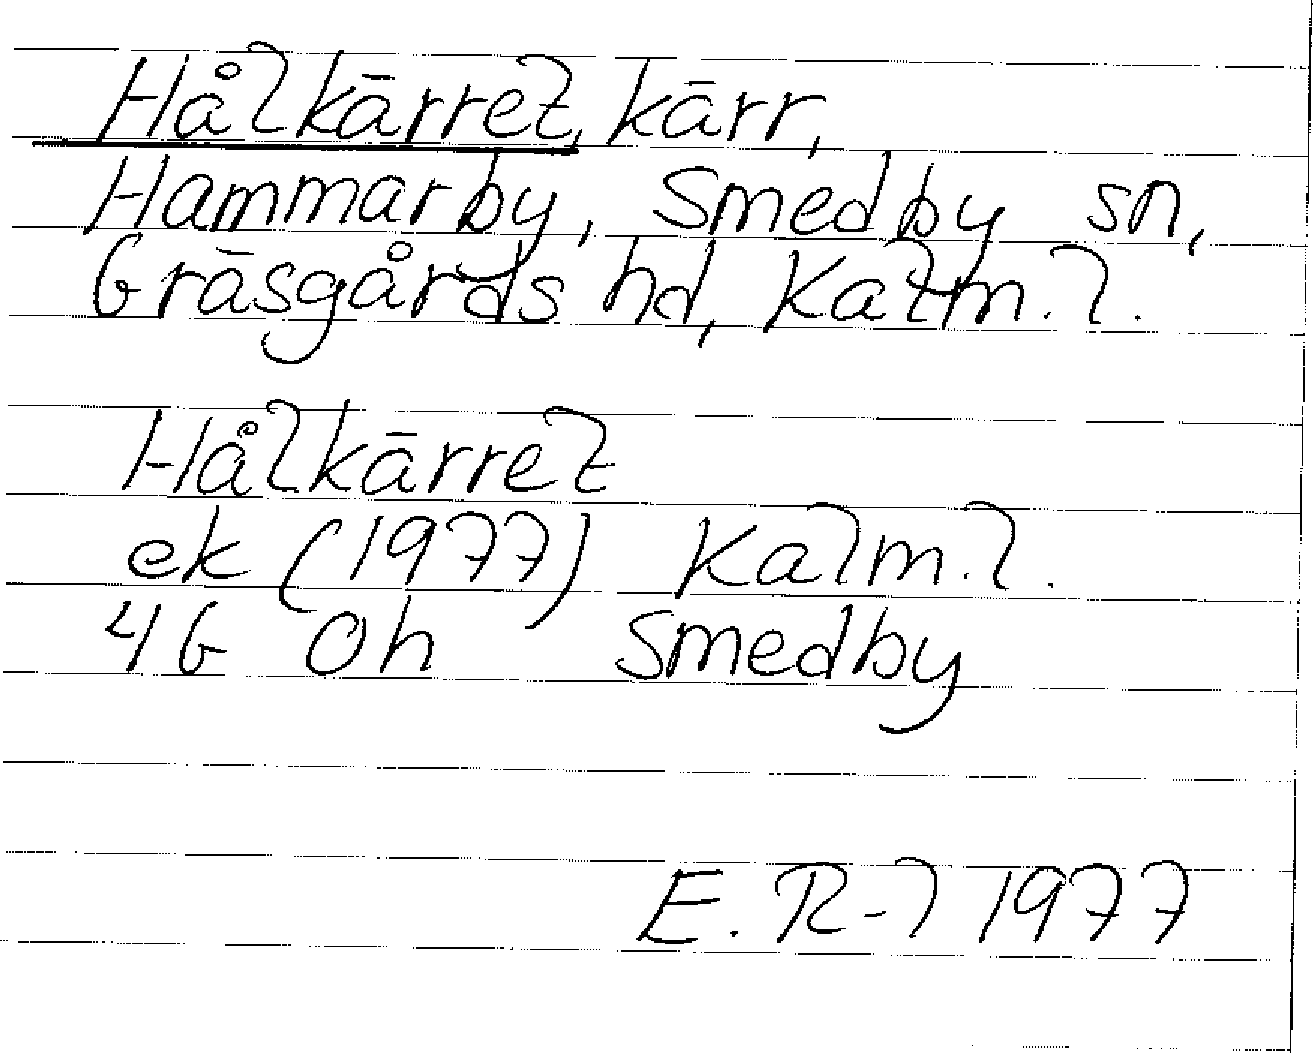 Hålkärret, kärr,
Hammarby, Smedby sn,
Gräsgårds hd, Kalm. l.
Hålkärret
ek (1977) Kalm. l.
4G 0h Smedby
E. R-l 1977